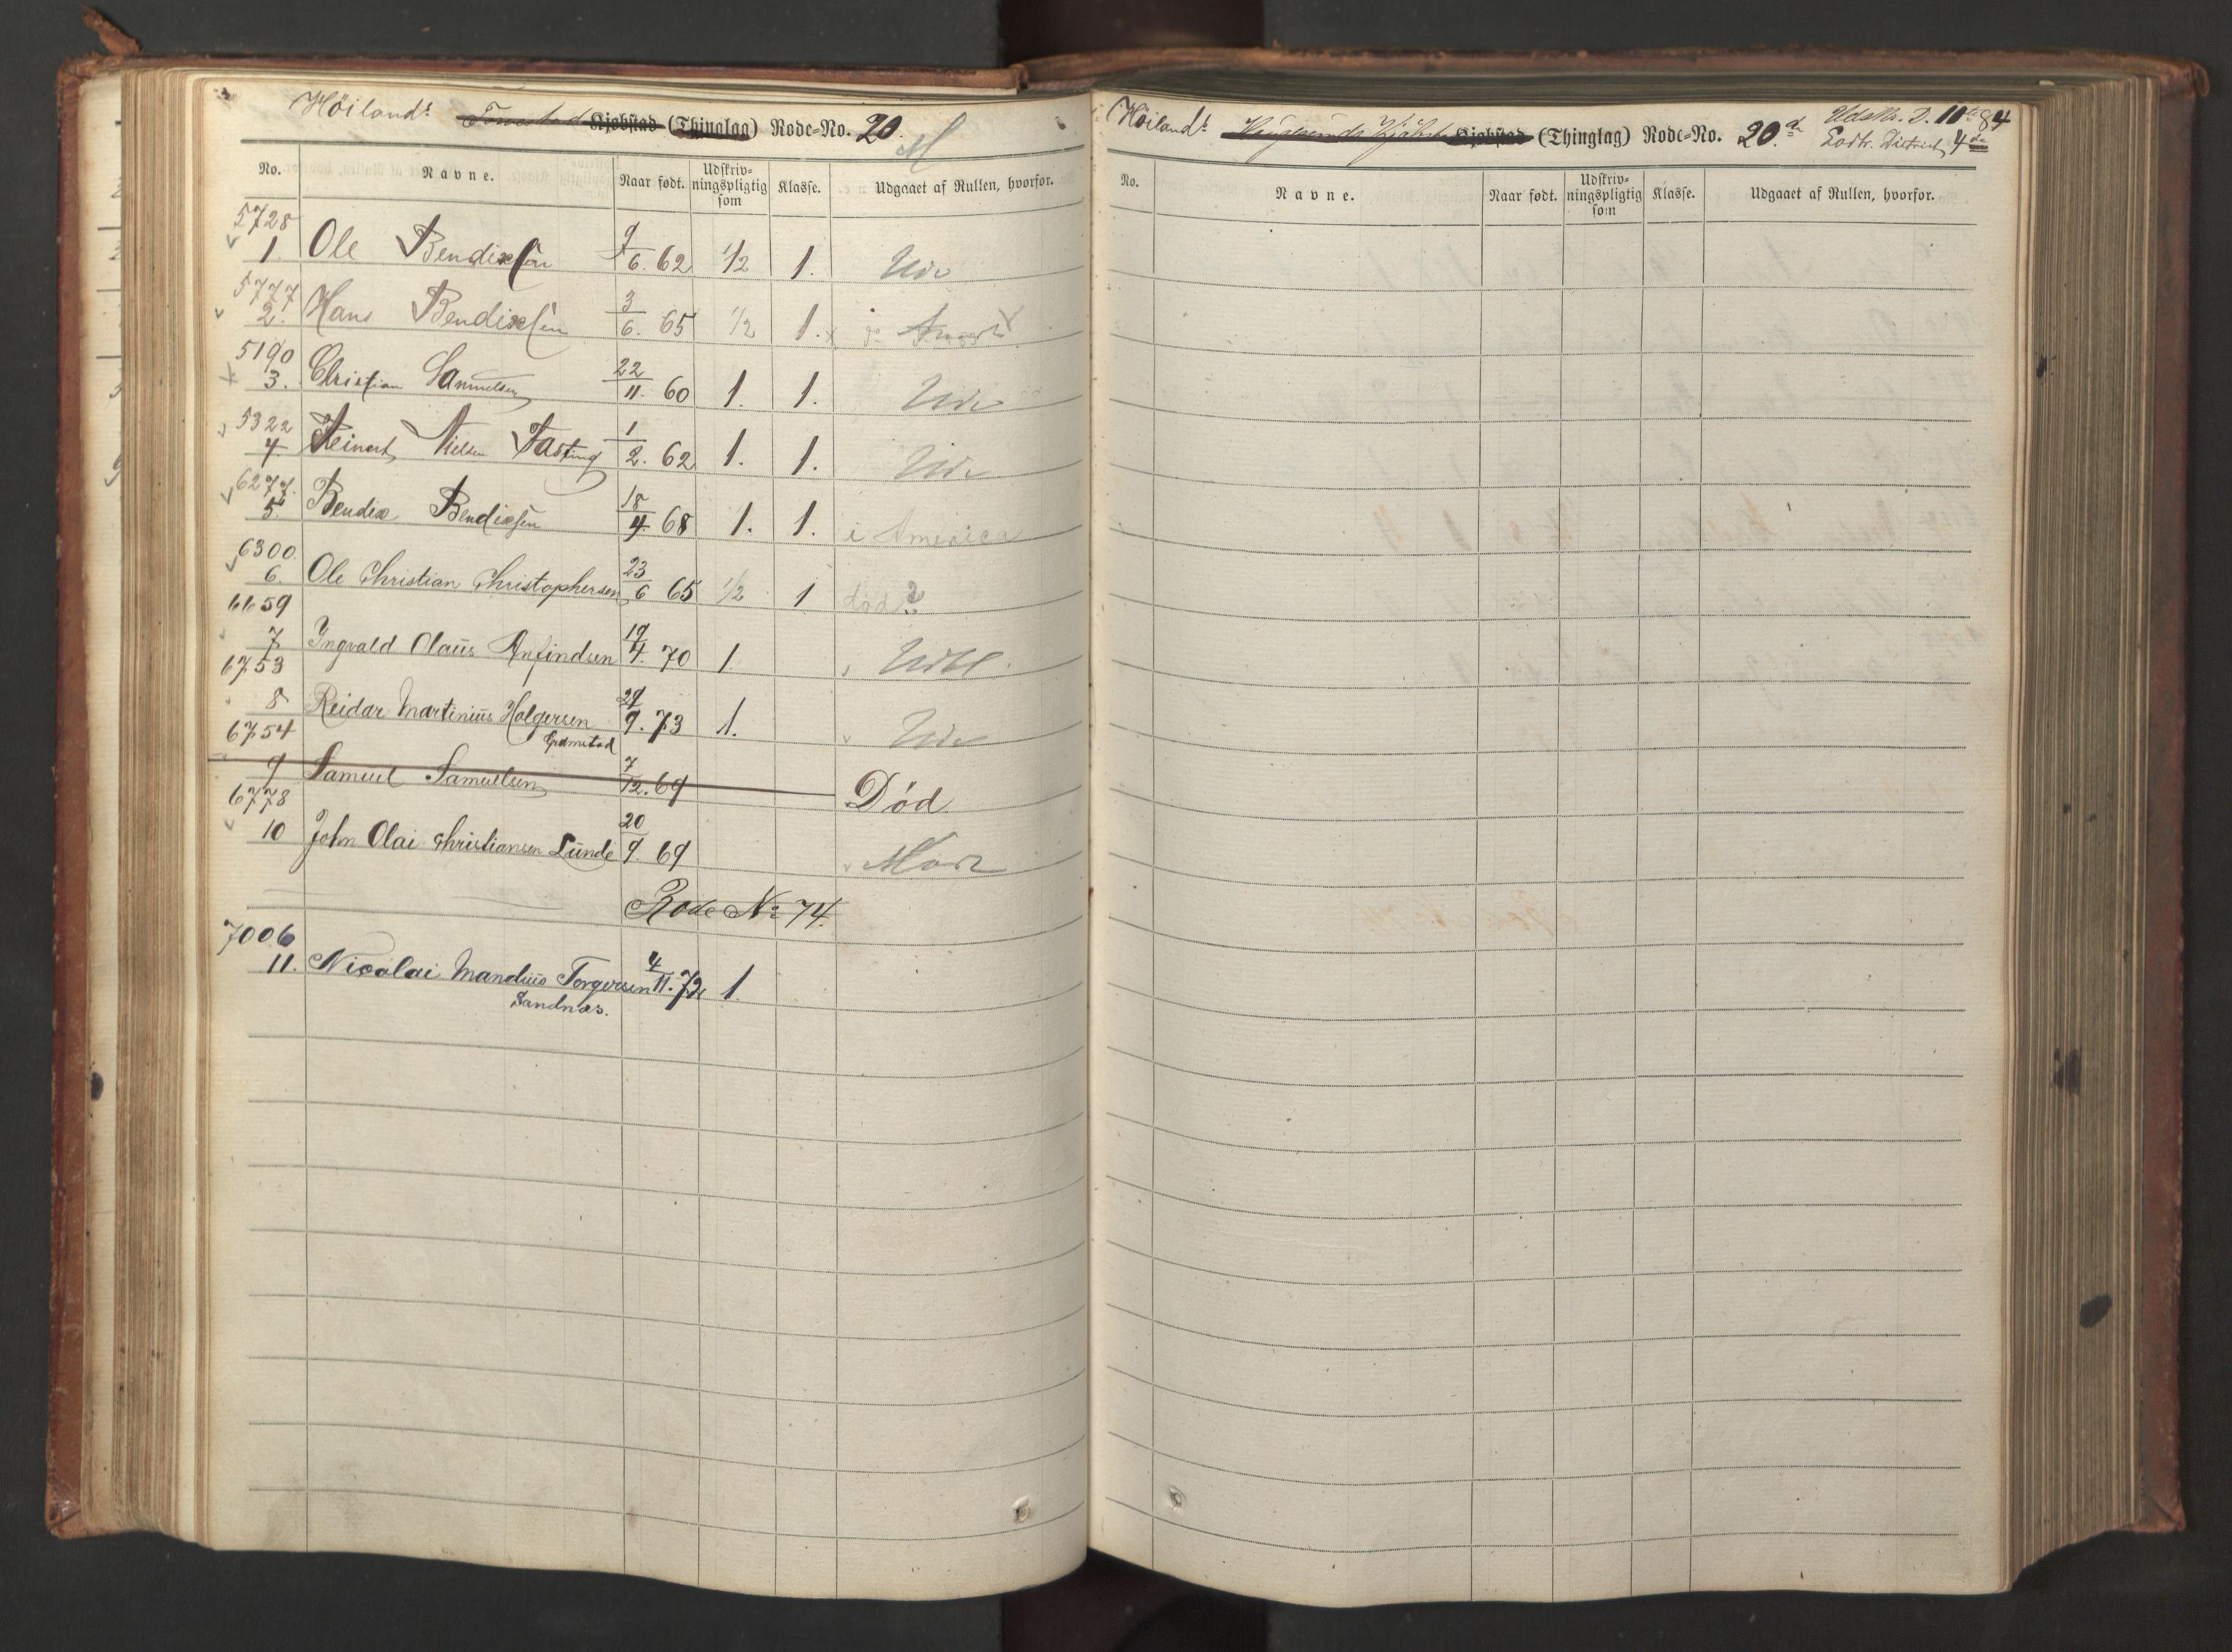 Höilands Kjøbstad (Thinglag) Rode-No. 20.
No. Navne. Naar født. Udskriv-ningspligtig som Klasse. Udgaaet af Rullen, hvorfor.
5728
1. Ole Bendixsen 9/6. 62 1/2 1. Ude
5777
2. Hans Bendixsen 3/6. 65 1/2 1.
5190
3. Christian Samuelsen 22/11. 60 1. 1. Ude
5322
4 Reinert Nielsen Fasting 1/2. 62 1. 1. Ude
6277.
5. Bendix Bendixsen 18/4. 68 1. 1. i America
6300.
6. Ole Christian Christophersen 23/6 65 1/2 1 død?
6659
7 Ingvald Olaüs Anfindsen 19/4. 70 1.
6753
8 Reidar Martiniüs Holgersen 29/9. 73 1. Ude
Grømstad
6754
9 Samuel Samuelsen 7/12. 69 Død
6778
10 John Olai Christiansen Lünde 20/9. 69
Rode No 74.
7006
11. Nicolai Mandiüs Torgersen 4/11. 72 1.
Sandnæs.
Höilands Kjøbstad (Thinglag) Rode-No. 20.de Udskr. D. 11te 84
Lodtr. District 4de
No. Navne. Naar født. Udskriv-ningspligtig som Klasse. Udgaaet af Rullen, hvorfor.